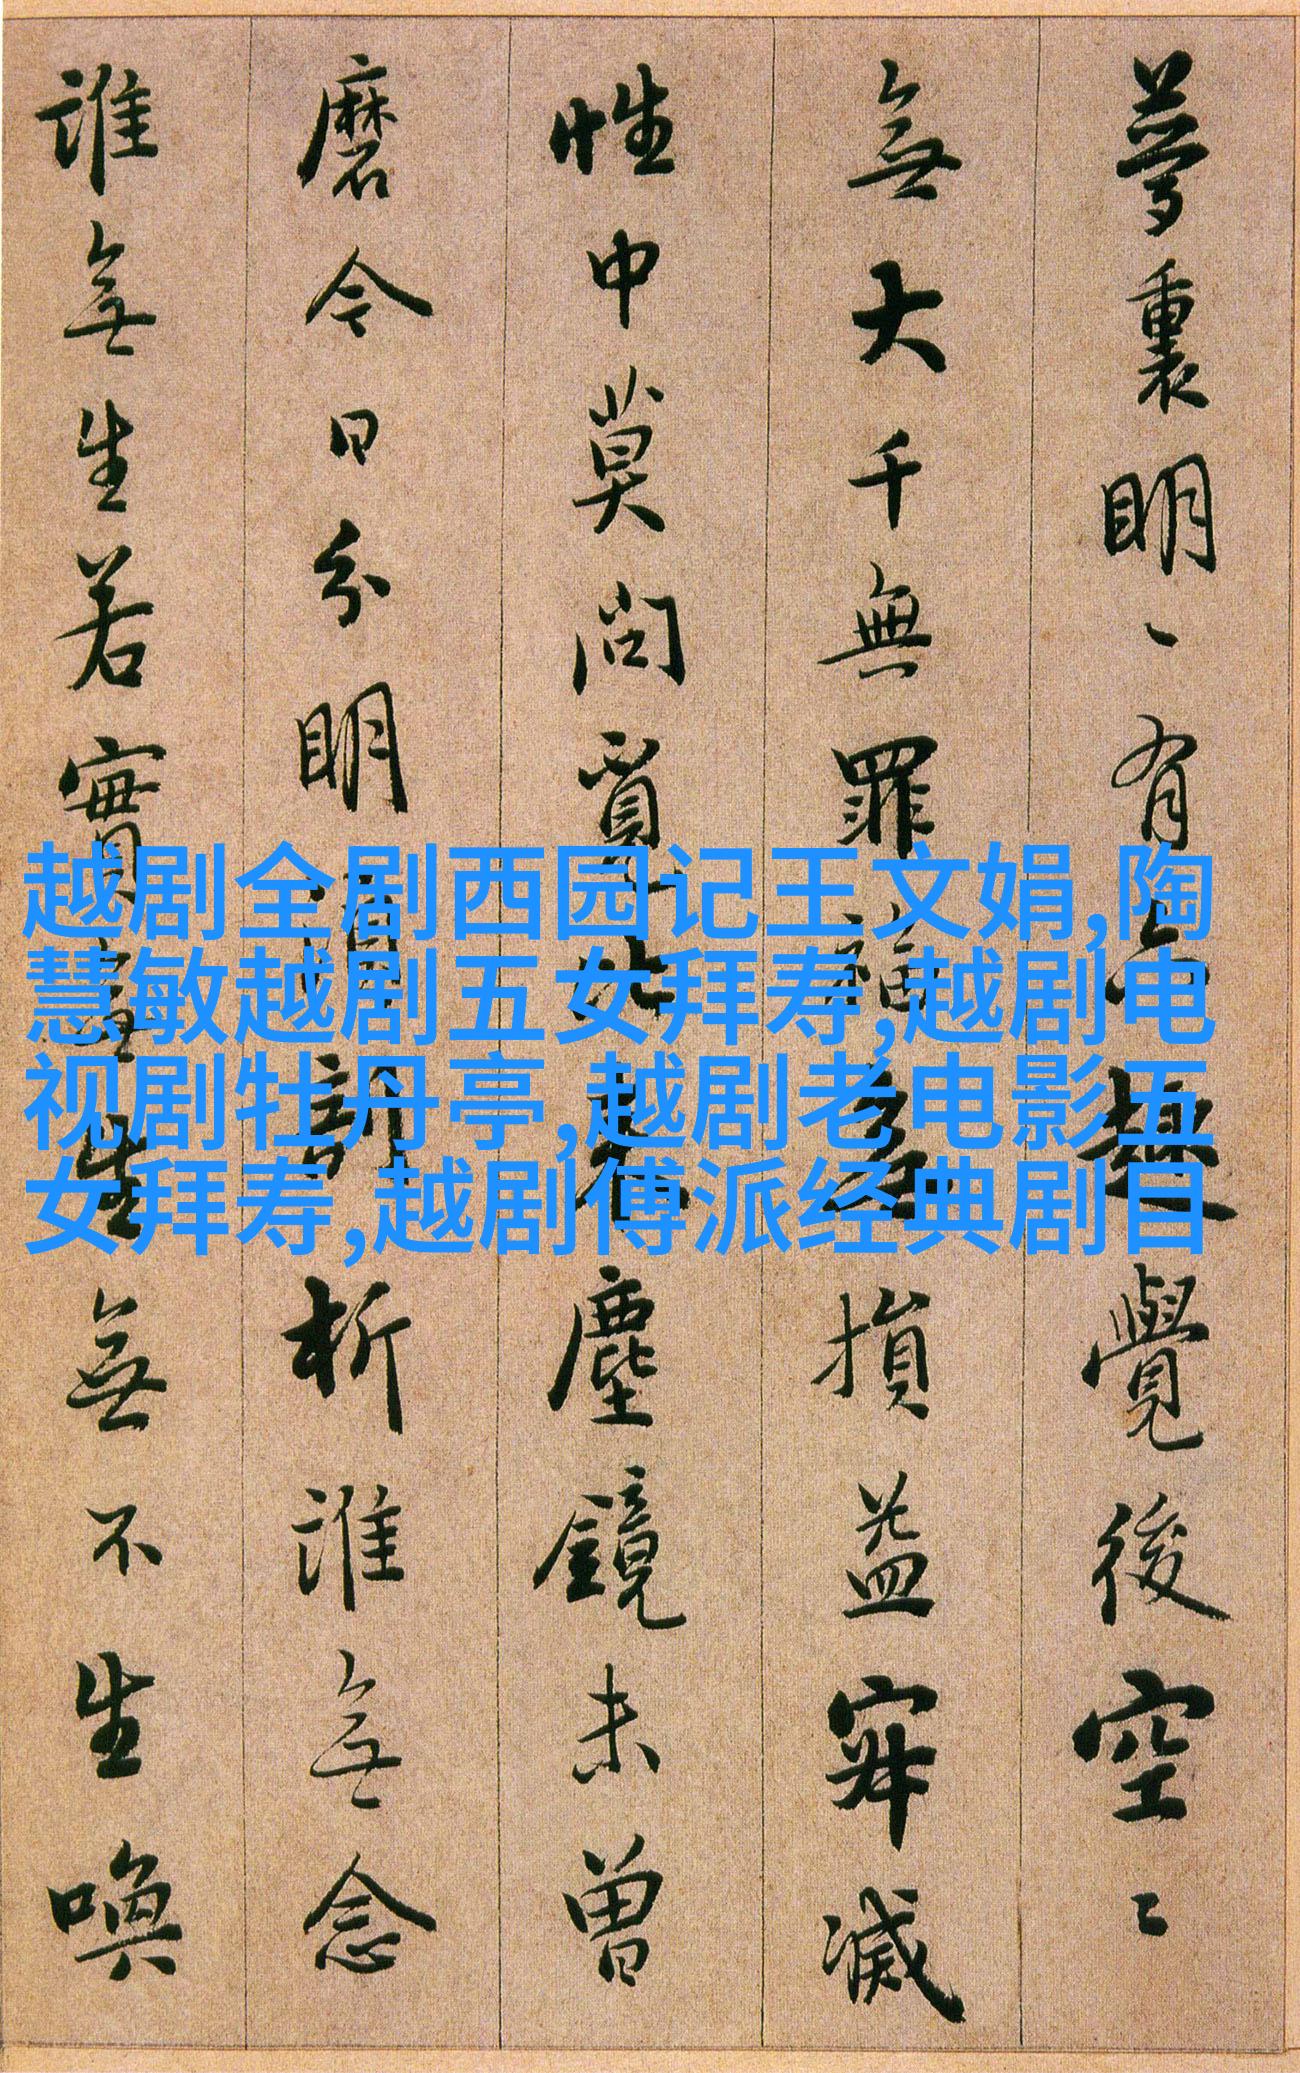 夢裏明々有六趣覺後空々
無大千無罪福無損益寂滅
性中莫問覓比来塵鏡未曾
磨今日分明須剖析誰無念
誰無生若實無生無不生喚
越剧全剧西园记王文娟,陶
慧敏越剧五女拜寿,越剧电
视剧牡丹亭,越剧老电影五
女拜寿,越剧傅派经典剧目